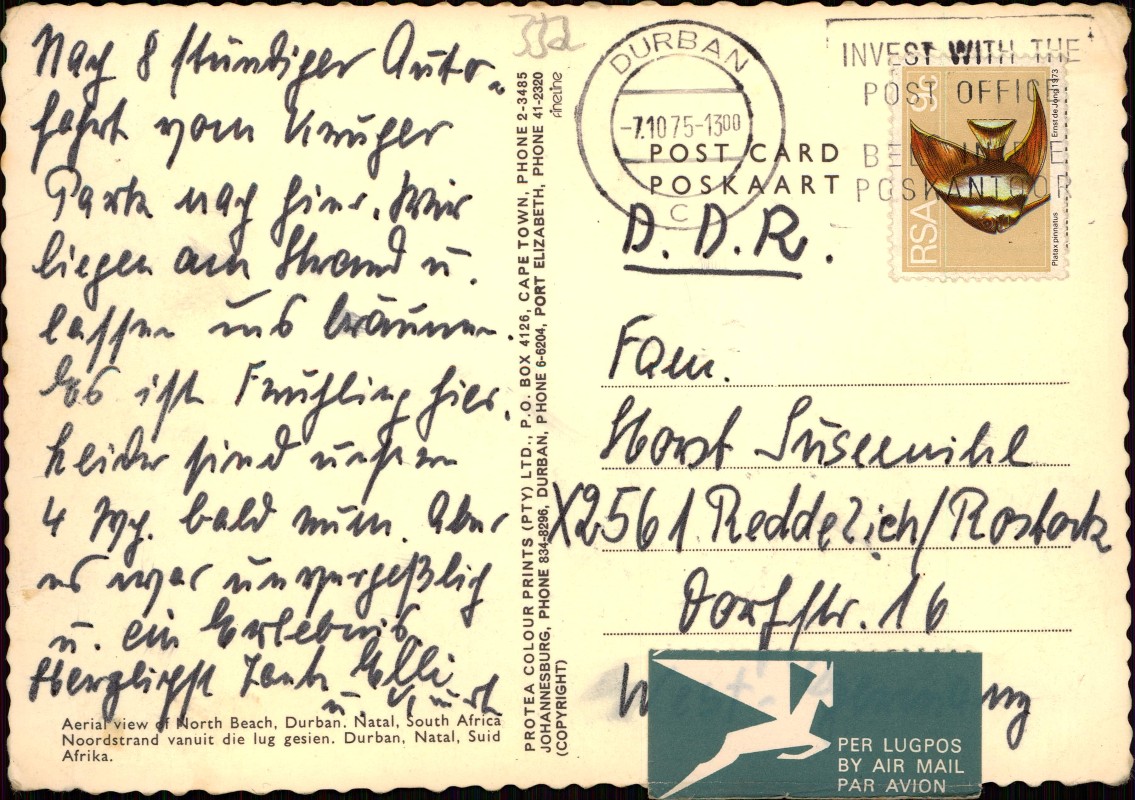 Nach 8 stündiger Auto-
fahrt vom Krüger
Park nach hier. Wir
liegen am Strand u.
lassen uns bräunen.
Es ist Frühling hier.
Leider sind unsere
4 Wch. bald rum. Aber
es war unvergeßlich
u. ein Erlebnis.
Herzlichst Tante Elli
u. Kurt
Aerial view of North Beach, Durban. Natal, South Africa
Noordstrand vanuit die lug gesien. Durban, Natal, Suid
Afrika.
PROTEA COLOUR PRINTS (PTY) LTD., P.O. BOX 4126, CAPE TOWN, PHONE 2-3485
JOHANNESBURG, PHONE 834-8296, DURBAN, PHONE 6-6204, PORT ELIZABETH, PHONE 41-2320
(COPYRIGHT)
fineline
DURBAN
-7.10 75-1300
C
INVEST WITH THE
POST OFFICE
BELÊ IN DIE
POSKANTOOR
POST CARD
POSKAART
RSA 9c
Platax pinnatus
Ernst de Jong 1973
D. D. R.
Fam.
Horst Süsemihl
X2561 Reddelich/Rostock
Dorfstr. 16
PER LUGPOS
BY AIR MAIL
PAR AVION